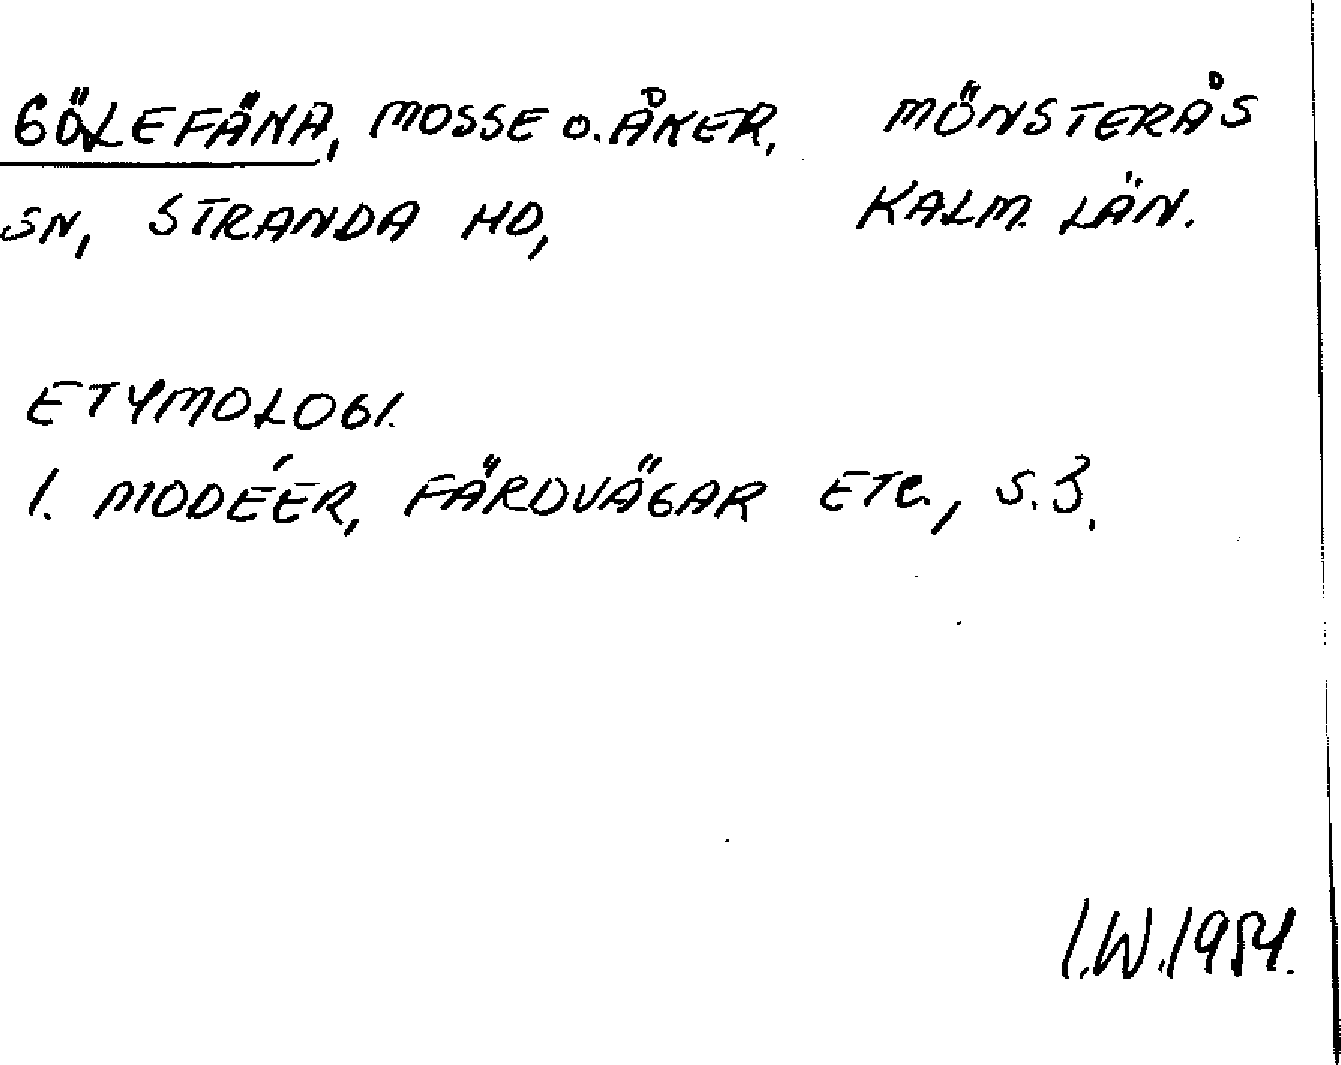 GÖLEFÄNA, MOSSE O. ÅKER, MÖNSTERÅS
SN, STRANDA HD, KALM. LÄN.
ETYMOLOGI.
1. MODÉER, FÄRDVÄGAR ETC., S. 3.
I.W. 1954.